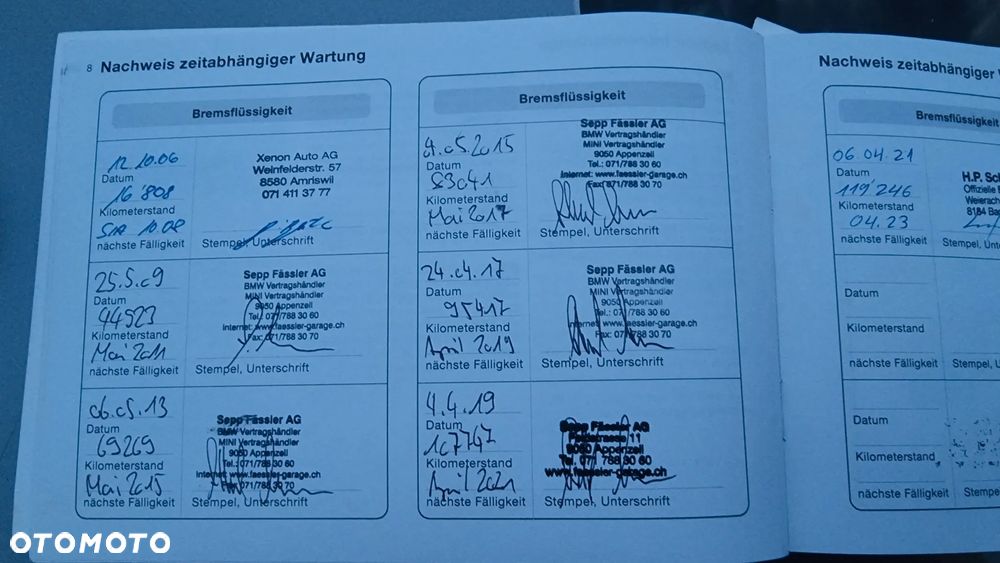 8 Nachweis zeitabhängiger Wartung
Bremsflüssigkeit
12.10.06
Datum
16'808
Kilometerstand
10.08
nächste Fälligkeit
Xenon Auto AG
Weinfelderstr. 57
8580 Amriswil
071 411 37 77
Stempel, Unterschrift
25.5.09
Datum
44523
Kilometerstand
Mai 2011
nächste Fälligkeit
Sepp Fässler AG
BMW Vertragshändler
MINI Vertragshändler
9050 Appenzell
Tel.: 071/788 30 60
Internet: www.faessler-garage.ch
Fax: 071/788 30 70
Stempel, Unterschrift
06.05.13
Datum
69269
Kilometerstand
Mai 2015
nächste Fälligkeit
Sepp Fässler AG
BMW Vertragshändler
MINI Vertragshändler
9050 Appenzell
Tel.: 071/788 30 60
Internet: www.faessler-garage.ch
Fax: 071/788 30 70
Stempel, Unterschrift
Bremsflüssigkeit
4.05.2015
Datum
83041
Kilometerstand
Mai 2017
nächste Fälligkeit
Sepp Fässler AG
BMW Vertragshändler
MINI Vertragshändler
9050 Appenzell
Tel.: 071/788 30 60
Internet: www.faessler-garage.ch
Fax: 071/788 30 70
Stempel, Unterschrift
24.04.17
Datum
95417
Kilometerstand
April 2019
nächste Fälligkeit
Sepp Fässler AG
BMW Vertragshändler
MINI Vertragshändler
9050 Appenzell
Tel.: 071/788 30 60
Internet: www.faessler-garage.ch
Fax: 071/788 30 70
Stempel, Unterschrift
4.4.19
Datum
107747
Kilometerstand
April 2021
nächste Fälligkeit
Sepp Fässler AG
11
9050 Appenzell
Tel. 071 788 30 60
www.faessler-garage.ch
Stempel, Unterschrift
Nachweis zeitabhängiger
Bremsflüssigkeit
06.04.21
Datum
119'246
Kilometerstand
04.23
nächste Fälligkeit
H.P. Sc
Offizielle
Weierach
8184 Ba
Stempel, Unt
Datum
Kilometerstand
nächste Fälligkeit
Stempel, U
Datum
Kilometerstand
nächste Fälligkeit
Stempe
OTOMOTO